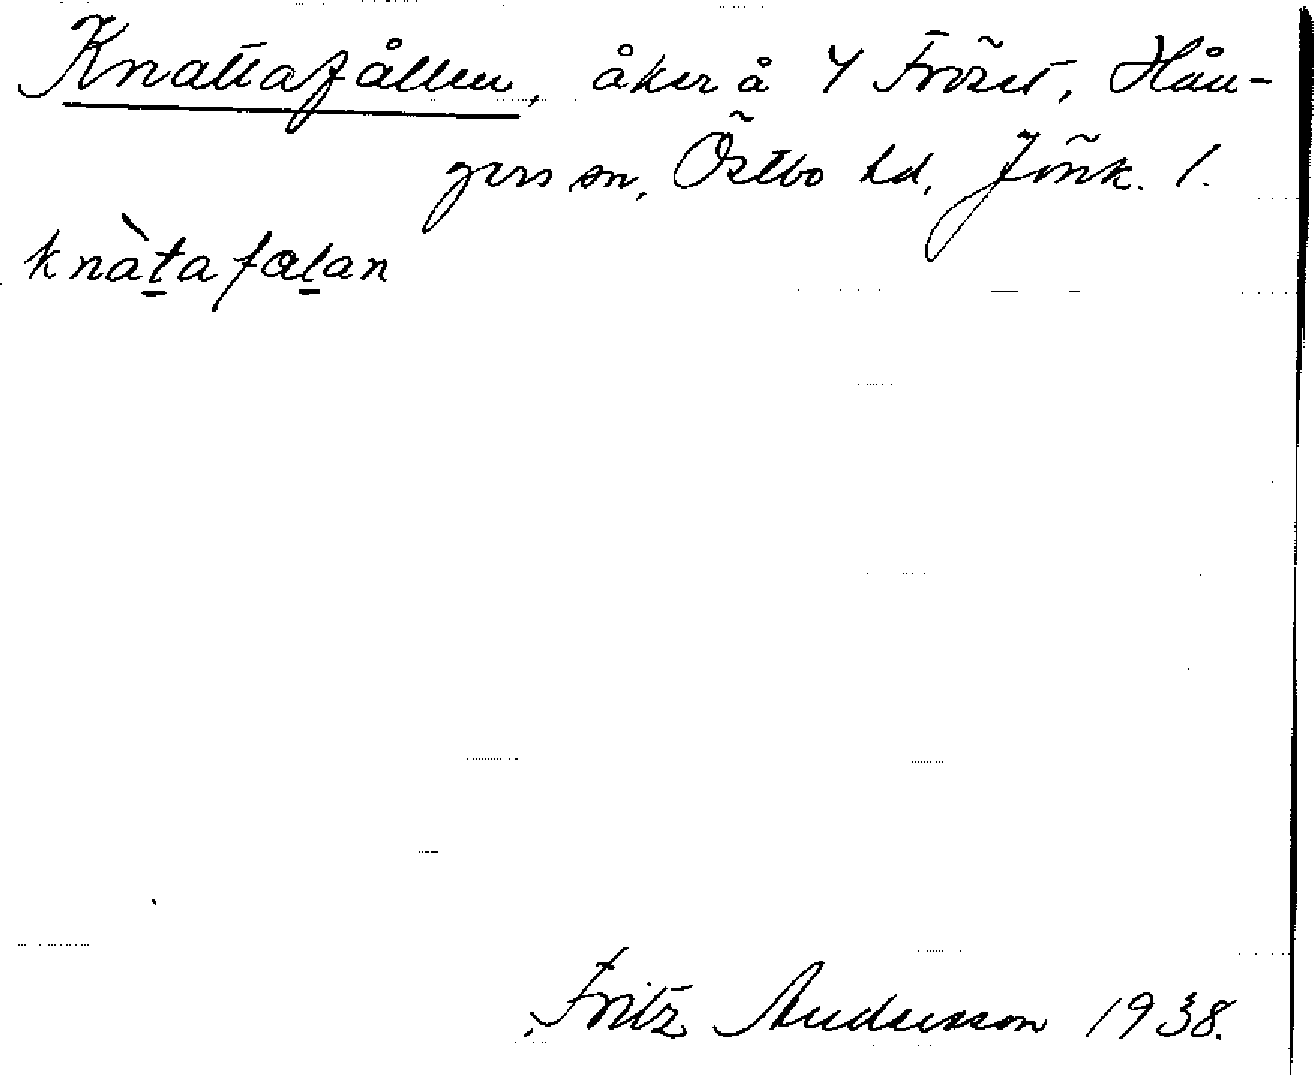 Knattafållen, åker å Y Fröset, Hån-
gers sn, Östbo hd, Jönk. l.
knàt̲afal̲an
Fritz Andersson 1938.